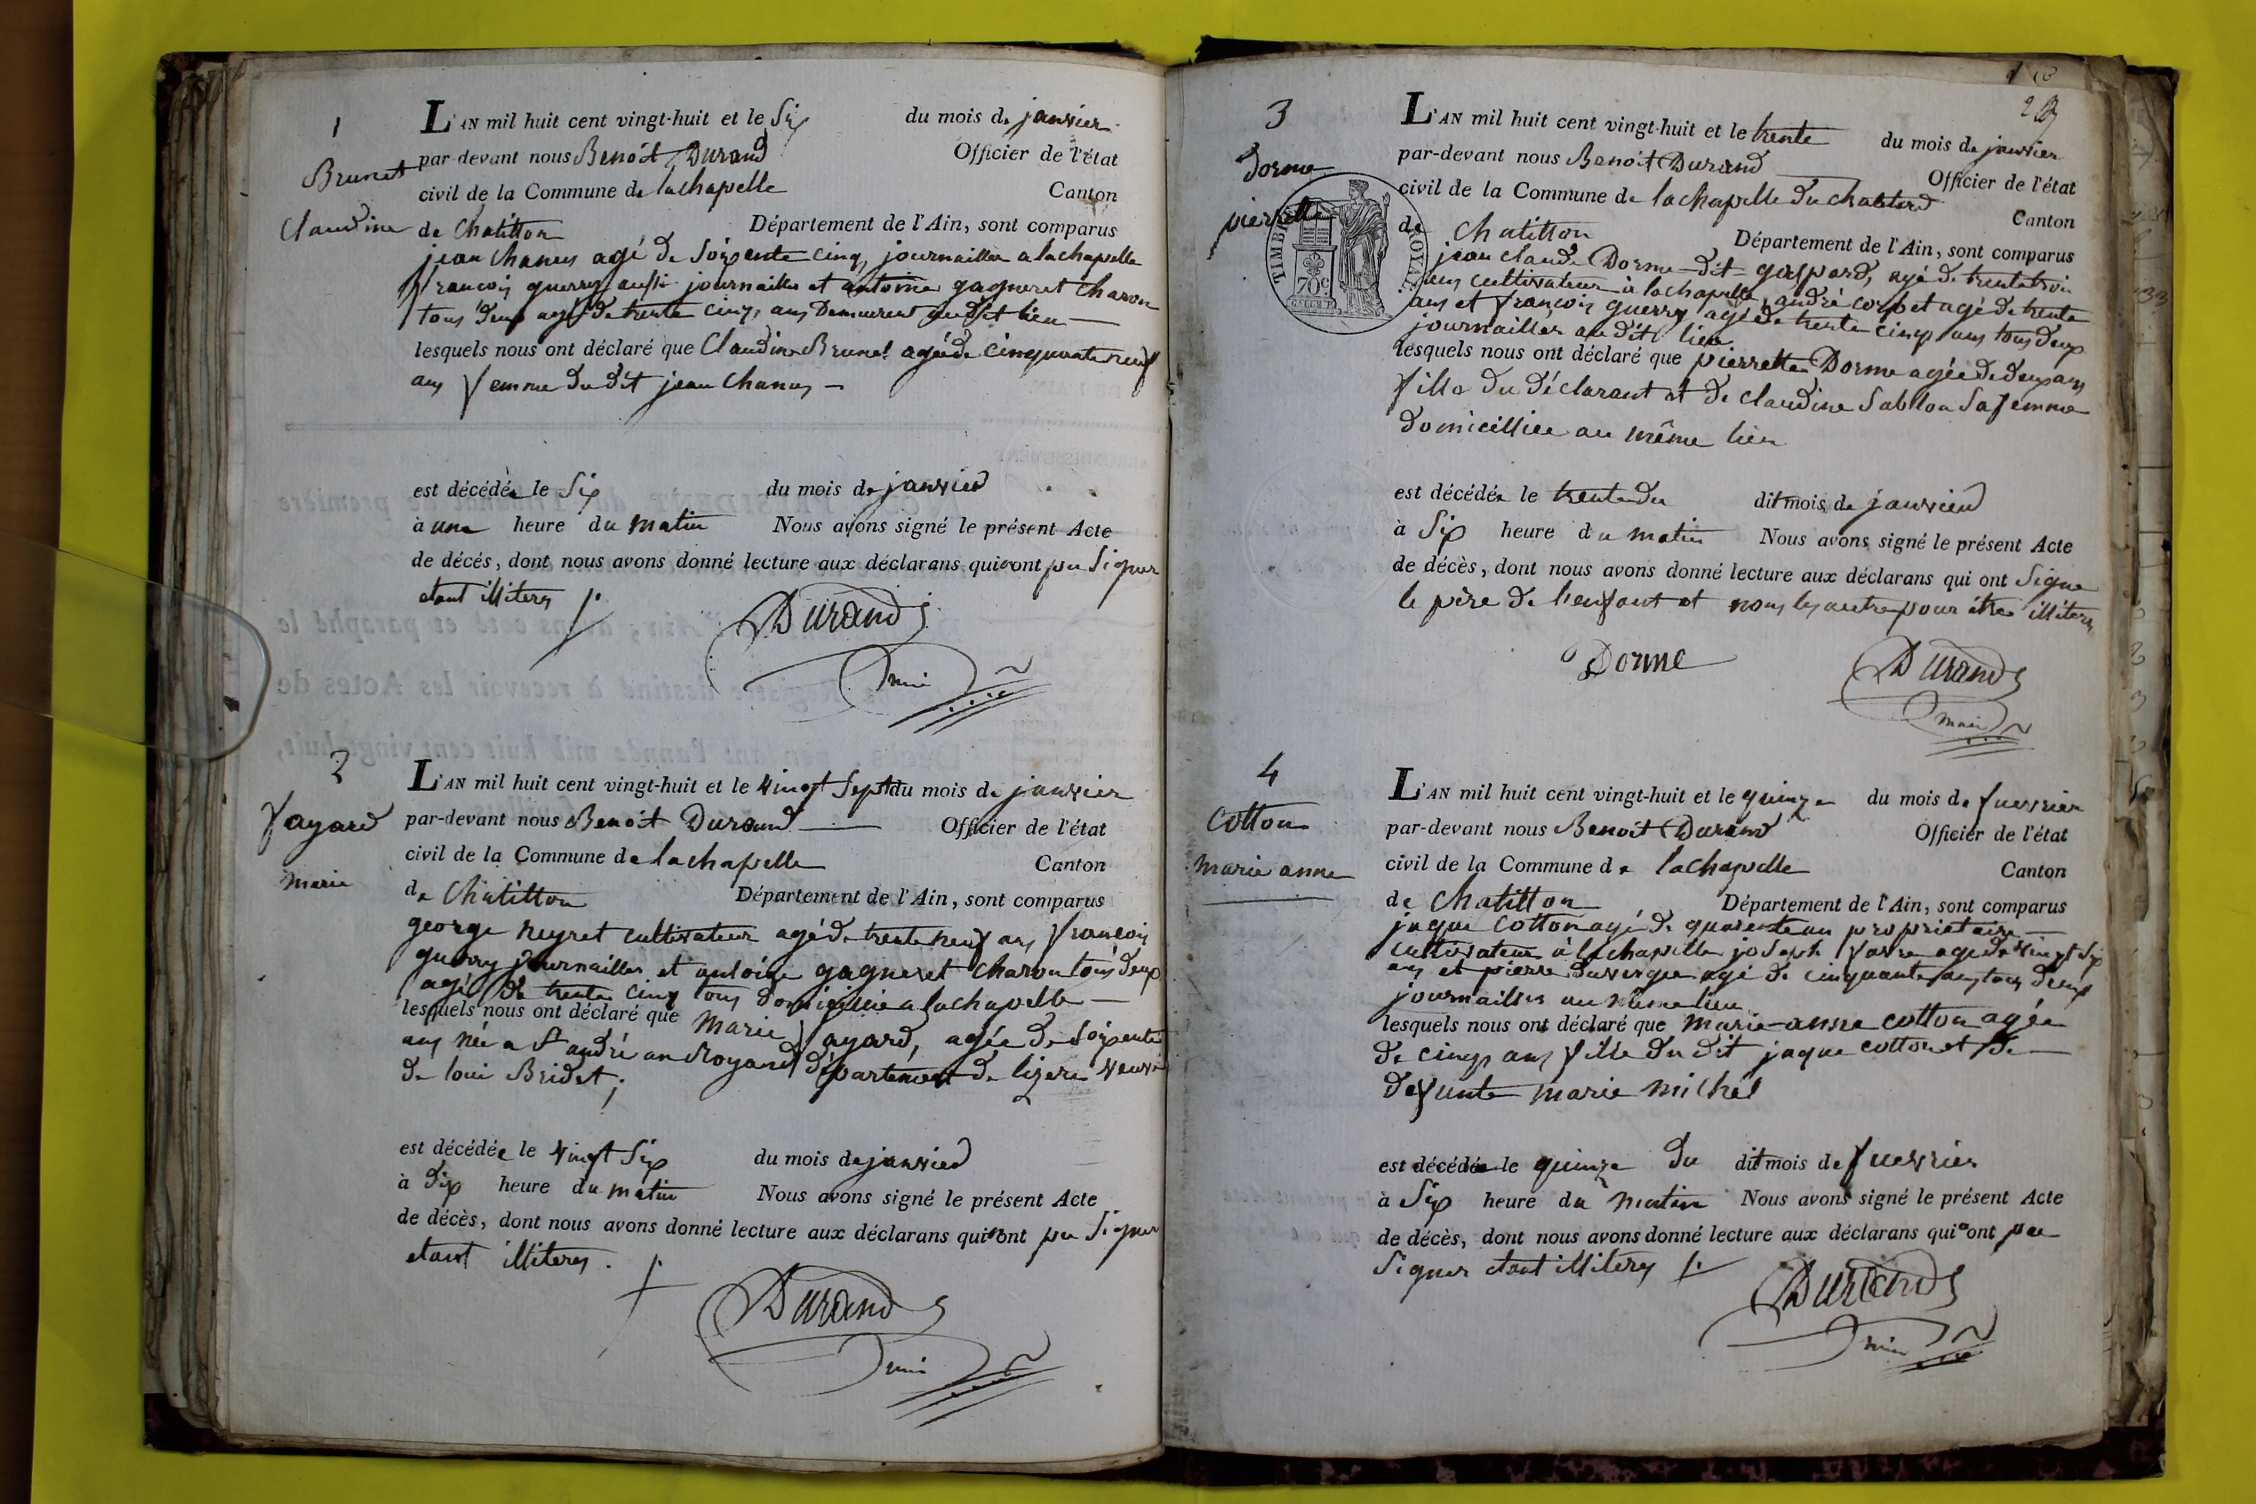 1
Brunet
Claudine
L'AN mil huit cent vingt-huit et le Six du mois de janvier
par-devant nous Benoit Durand Officier de l'état
civil de la Commune de lachapelle Canton
de Chatillon Département de l'Ain, sont comparus
jean Chanus agé de Soixente cinq, journaillier a lachapelle
francois guerry aussi journaillier et antoine gagneret charon
tous deux agé de trente cinq ans Demeurent audit lieu —
lesquels nous ont déclaré que Claudine Brunet agée de cinquante neuf
ans femme du dit jean Chanus —
est décédée le Six du mois de janvier
à une heure du matin Nous avons signé le présent Acte
de décés, dont nous avons donné lecture aux déclarans qui ont pu Signer
etant illiteres
Durand
maire
2
fayard
marie
L'AN mil huit cent vingt-huit et le vingt Sept du mois de janvier
par-devant nous Benoit Durand — Officier de l'état
civil de la Commune de lachapelle Canton
de Chatillon Département de l'Ain, sont comparus
george neyret cultivateur agé de trente neuf ans francois
guerry journaillier et antoine gagneret charon tous deux
agé de trente cinq tous domicillié a lachapelle —
lesquels nous ont déclaré que marie fayard, agée de Soixente
ans née a St andré an Royand département de lizere veuve
de loui Bridet;
est décédée le vingt Six du mois de janvier
à dix heure du matin Nous avons signé le présent Acte
de décès, dont nous avons donné lecture aux déclarans qui ont pu Signer
etant illiteres.
Durand
maire
3
Dorme
pierrette
TIMBRE ROYAL
70c
L'AN mil huit cent vingt-huit et le trente du mois de janvier
par-devant nous Benoit Durand — Officier de l'état
civil de la Commune de lachapelle du chatelard Canton
de Chatillon Département de l'Ain, sont comparus
jean claude Dorme dit gaspard, agé de trentetrois
ans cultivateur a lachapelle, andré corpet agé de trente
ans et francois guerry agé de trente cinq ans tous deux
journaillier au dit lieu
lesquels nous ont déclaré que pierrette Dorme agée de deux ans
fille du déclarant et de claudine Sablon Sa femme
domicilliée au même lieu
est décédée le trente du dit mois de janvier
à Six heure du matin Nous avons signé le présent Acte
de décès, dont nous avons donné lecture aux déclarans qui ont Signe
le père de lenfant et nom les autre pour être illiteres
Dorme
Durand
maire
4
Cotton
marie anne
L'AN mil huit cent vingt-huit et le quinze du mois de fuevrier
par-devant nous Benoit Durand Officier de l'état
civil de la Commune de lachapelle Canton
de Chatillon Département de l'Ain, sont comparus
jaque Cotton agé de quarente an propriétaire —
cultivateur à lachapelle joseph favre agé de vingt Six
ans et pierre duverger agé de cinquante ans tous deux
journaillier au même lieu
lesquels nous ont déclaré que marie-anne cotton agée
de cinq ans fille du dit jaque cotton et de —
defunte marie michel
est décédée le quinze du dit mois de fuevrier
à Six heure du matin Nous avons signé le présent Acte
de décès, dont nous avons donné lecture aux déclarans qui ont pu
Signer etant illiteres
Durand
maire